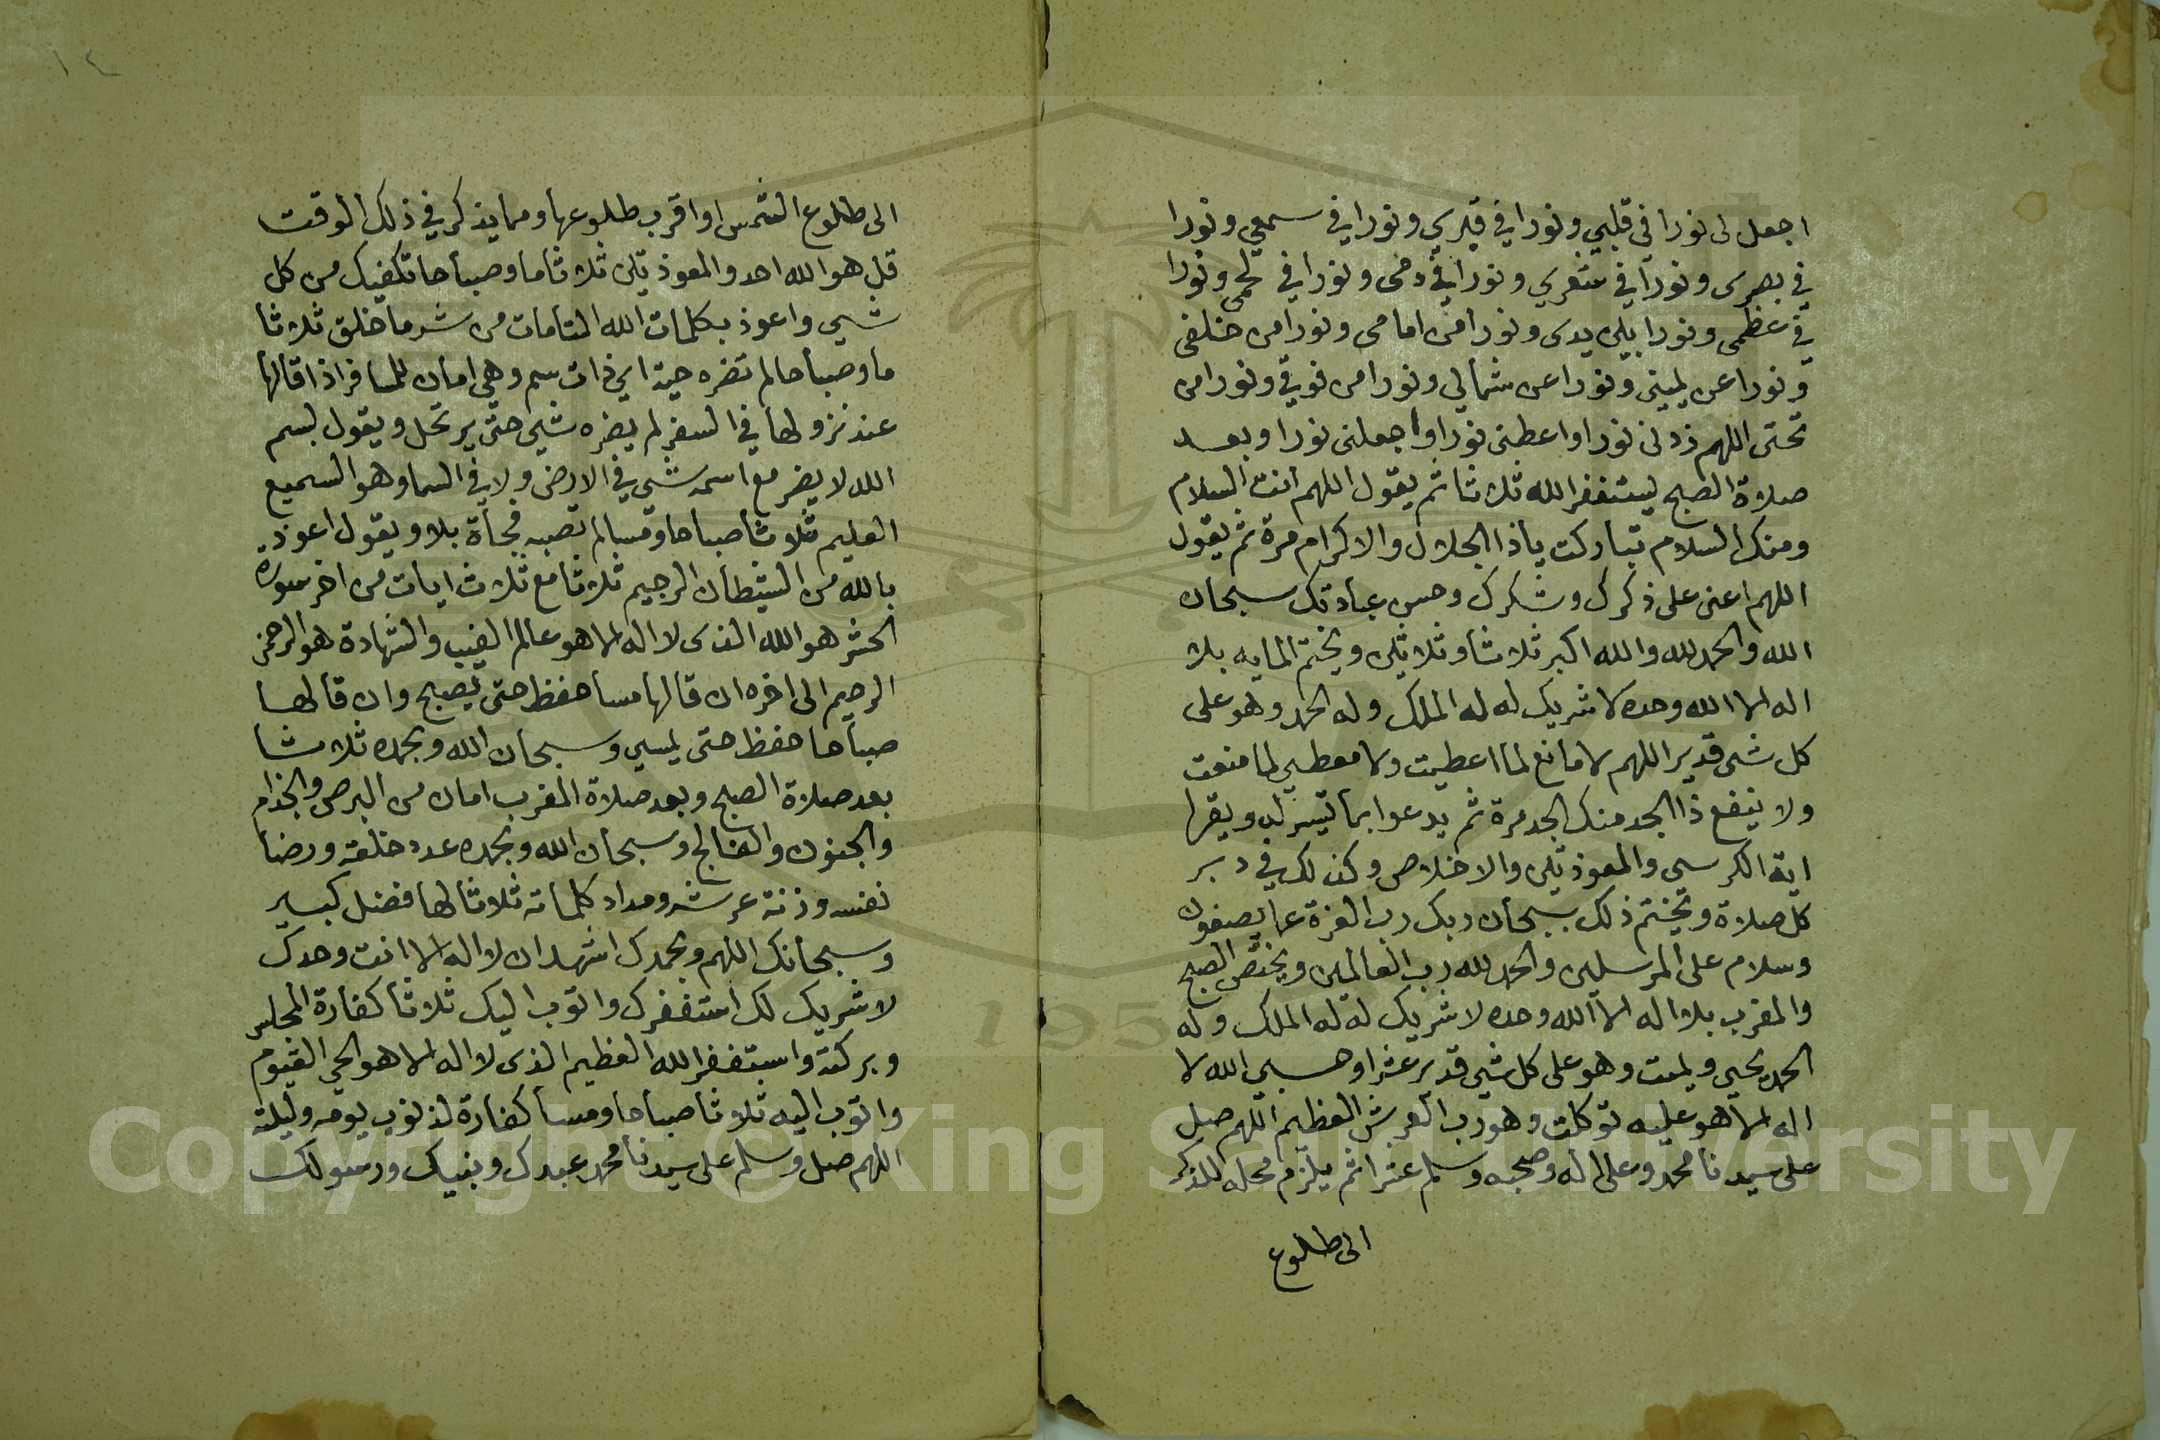 اجعل لى نورا فى قلبي ونورا في قبري ونورا في سمعي ونورا
في بصرى ونورا في شعري ونورا في دمى ونورا في لحمى ونورا
في عظمى ونورا بين يدى ونورا من امامى ونورا من خلفى
ونورا عن يمينى ونورا عن شمالي ونورا من فوقي ونورا من
تحتى اللهم زدنى نورا واعطنى نورا واجعلنى نورا وبعد
صلاة الصبح ليستغفر الله ثلاثا ثم يقول اللهم انت السلام
ومنك السلام تباركت ياذا الجلال والاكرام مرة ثم يقول
اللهم اعنى على ذكرك وشكرك وحسن عبادتك سبحان
الله والحمد لله والله اكبر ثلاثا وثلاثين ويختم المايه بلا
اله الا الله وحده لا شريك له له الملك وله الحمد وهو على
كل شى قدير اللهم لا مانع لما اعطيت ولا معطي لما منعت
ولا ينفع ذا الجد منك الجد مرة ثم يدعوا بما تيسر له ويقرا
اية الكرسى والمعوذتين والاخلاص وكذلك في دبر
كل صلاة ويختم ذلك بسبحان ربك رب العزة عما يصفون
وسلام على المرسلين والحمد لله رب العالمين ويختص الصبح
والمغرب بلا اله الا الله وحده لا شريك له له الملك وله
الحمد يحيي ويميت وهو على كل شي قدير عشرا وحسبي الله لا
اله الا هو عليه توكلت وهو رب العرش العظيم اللهم صل
على سيدنا محمد وعلى اله وصحبه وسلم عشرا ثم يلزم محله للذكر
الى طلوع
١٤
الى طلوع الشمس او اقرب طلوعها ومما يذكر في ذلك الوقت
قل هو الله احد والمعوذتين ثلاثا ما وصباحا تكفيك من كل
شي واعوذ بكلمات الله التامات من شر ما خلق ثلاثا
ما وصباحا لم تضره حية اي ذات سم وهى امان للمسافر اذا قالها
عند نزولها في السفر لم يضره شي حتى يرتحل ويقول بسم
الله لا يضر مع اسمه شي في الارض ولا في السما وهو السميع
العليم ثلاثا صباحا ومسا لم تصبه فجأة بلا ويقول اعوذ
بالله من الشيطان الرجيم ثلاثا مع ثلاث ايات من اخر سورة
الحشر هو الله الذى لا اله الا هو عالم الغيب والشهادة هو الرحمن
الرحيم الى اخره ان قالها مسا حفظ حتى يصبح وان قالها
صباحا حفظ حتى يمسي وسبحان الله وبحمده ثلاثا
بعد صلاة الصبح وبعد صلاة المغرب امان من البرص والجذام
والجنون والفالج وسبحان الله وبحمده عدد خلقه ورضا
نفسه وزنة عرشه ومداد كلماته ثلاثا لها فضل كبير
وسبحانك اللهم وبحمدك اشهد ان لا اله الا انت وحدك
لا شريك لك استغفرك واتوب اليك ثلاثا كفارة المجلس
وبركته واستغفر الله العظيم الذى لا اله الا هو الحي القيوم
واتوب اليه ثلاثا صباحا ومسا كفارة لذنوب يومه وليلته
اللهم صل وسلم على سيدنا محمد عبدك ونبيك ورسولك
Copyright © King Saud University
195